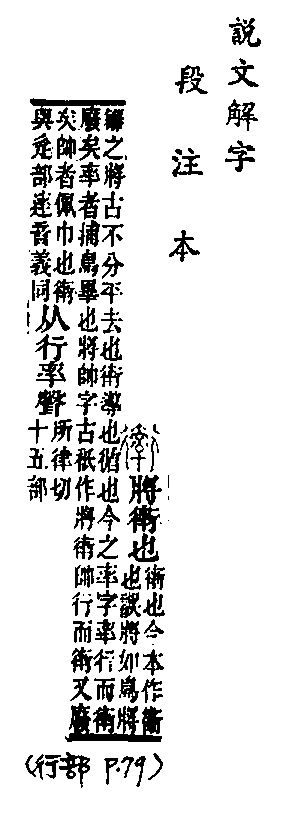 說文解字
段注本
將䘗也
䘗也今本作衞
也誤將如鳥將
雛之將古不分平去也䘗導也循也今之率字率行而䘗
廢矣率者捕鳥畢也將帥字古衹作將䘗帥行而䘗又廢
矣帥者佩巾也䘗
與辵部䢦音義同
从行率聲
所律切
十五部
(行部 P.79)